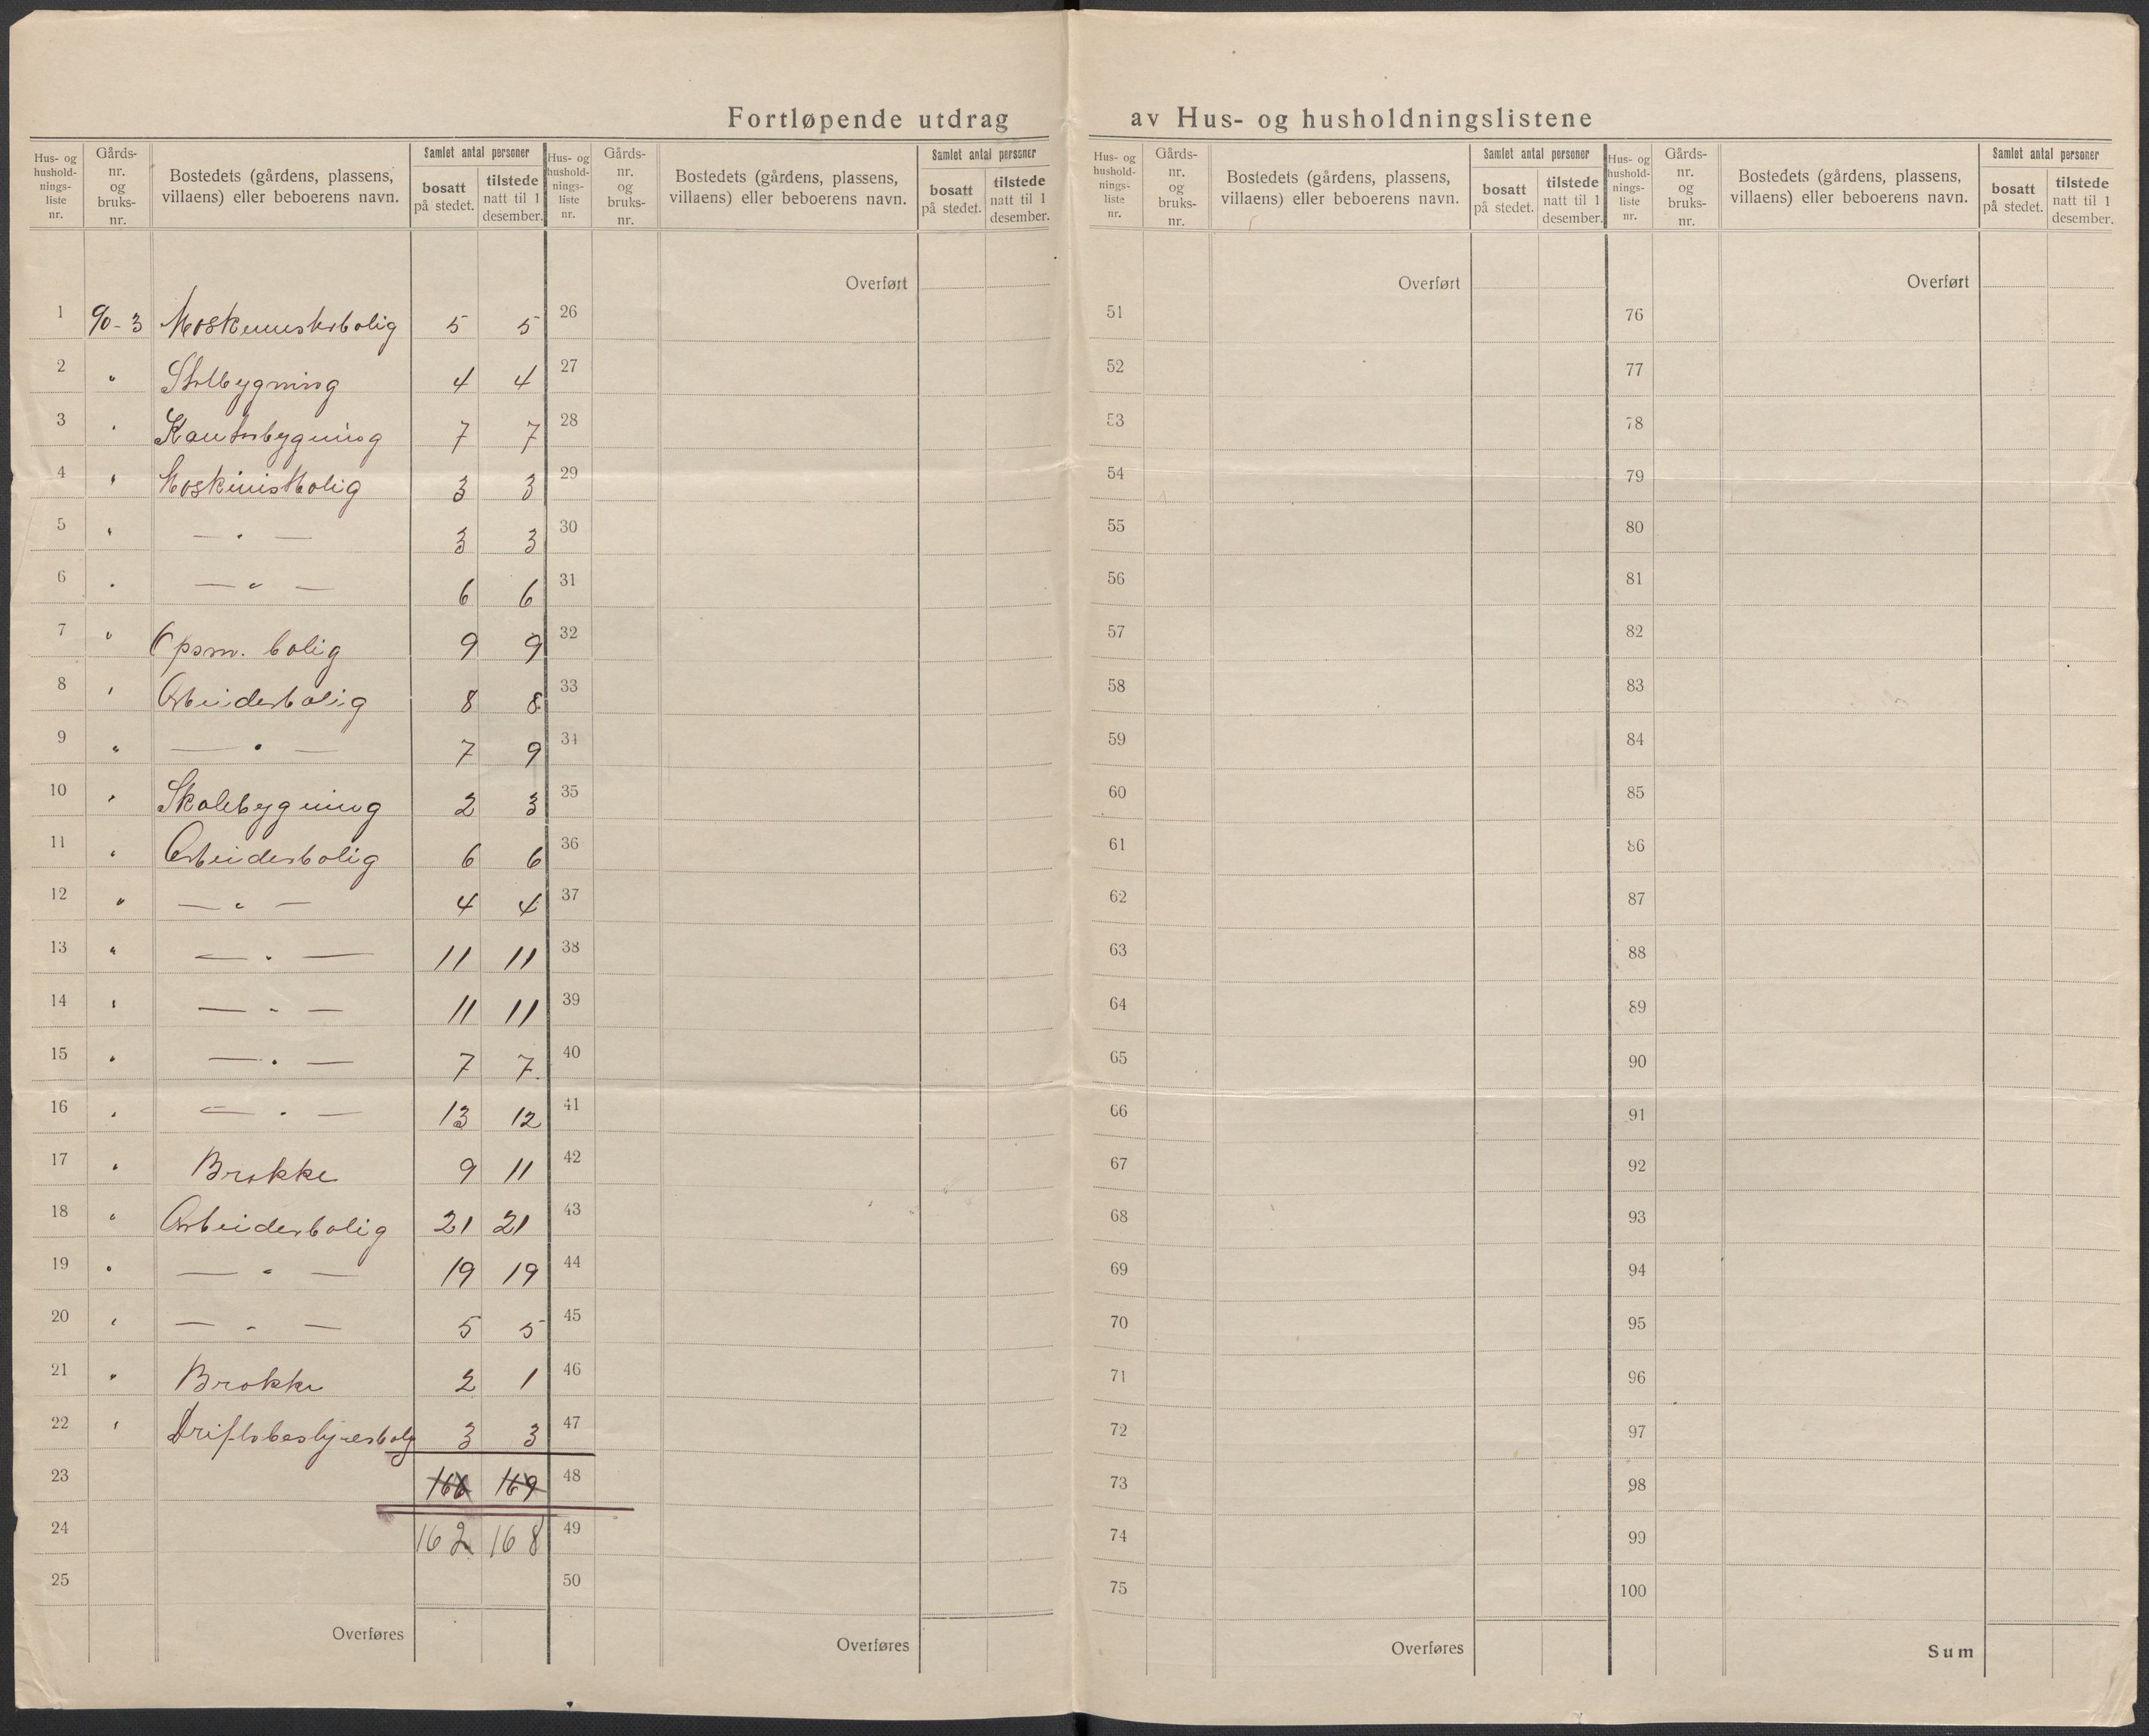 Fortløpende utdrag av Hus- og husholdningslistene
Hus- og hushold- nings- liste nr. | Gårds- nr. og bruks- nr. | Bostedets (gårdens, plassens, villaens) eller beboerens navn. | Samlet antal personer | bosatt på stedet. | tilstede natt til 1 desember.
Hus- og hushold- nings- liste nr. | Gårds- nr. og bruks- nr. | Bostedets (gårdens, plassens, villaens) eller beboerens navn. | Samlet antal personer | bosatt på stedet. | tilstede natt til 1 desember.
Hus- og hushold- nings- liste nr. | Gårds- nr. og bruks- nr. | Bostedets (gårdens, plassens, villaens) eller beboerens navn. | Samlet antal personer | bosatt på stedet. | tilstede natt til 1 desember.
Hus- og hushold- nings- liste nr. | Gårds- nr. og bruks- nr. | Bostedets (gårdens, plassens, villaens) eller beboerens navn. | Samlet antal personer | bosatt på stedet. | tilstede natt til 1 desember.
Overført Overført Overført
1 90-3 5 5 26 51 76
2 " 4 4 27 52 77
3 " Kontorbygning 7 7 28 53 78
4 " Maskinistbolig 3 3 29 54 79
5 " — " — 3 3 30 55 80
6 " — " — 6 6 31 56 81
7 " Opsm. bolig 9 9 32 57 82
8 " Arbeiderbolig 8 8 33 58 83
9 " — " — 7 9 34 59 84
10 " Skolebygning 2 3 35 60 85
11 " Arbeiderbolig 6 6 36 61 86
12 " — " — 4 4 37 62 87
13 " — " — 11 11 38 63 88
14 " — " — 11 11 39 64 89
15 " — " — 7 7 40 65 90
16 " — " — 13 12 41 66 91
17 " Brakke 9 11 42 67 92
18 " Arbeiderbolig 21 21 43 68 93
19 " — " — 19 19 44 69 94
20 " — " — 5 5 45 70 95
21 " Brakke 2 1 46 71 96
22 " Driftsbestyrerbolg 3 3 47 72 97
23 166 169 48 73 98
24 162 168 49 74 99
25 50 75 100
Overføres Overføres Overføres Sum